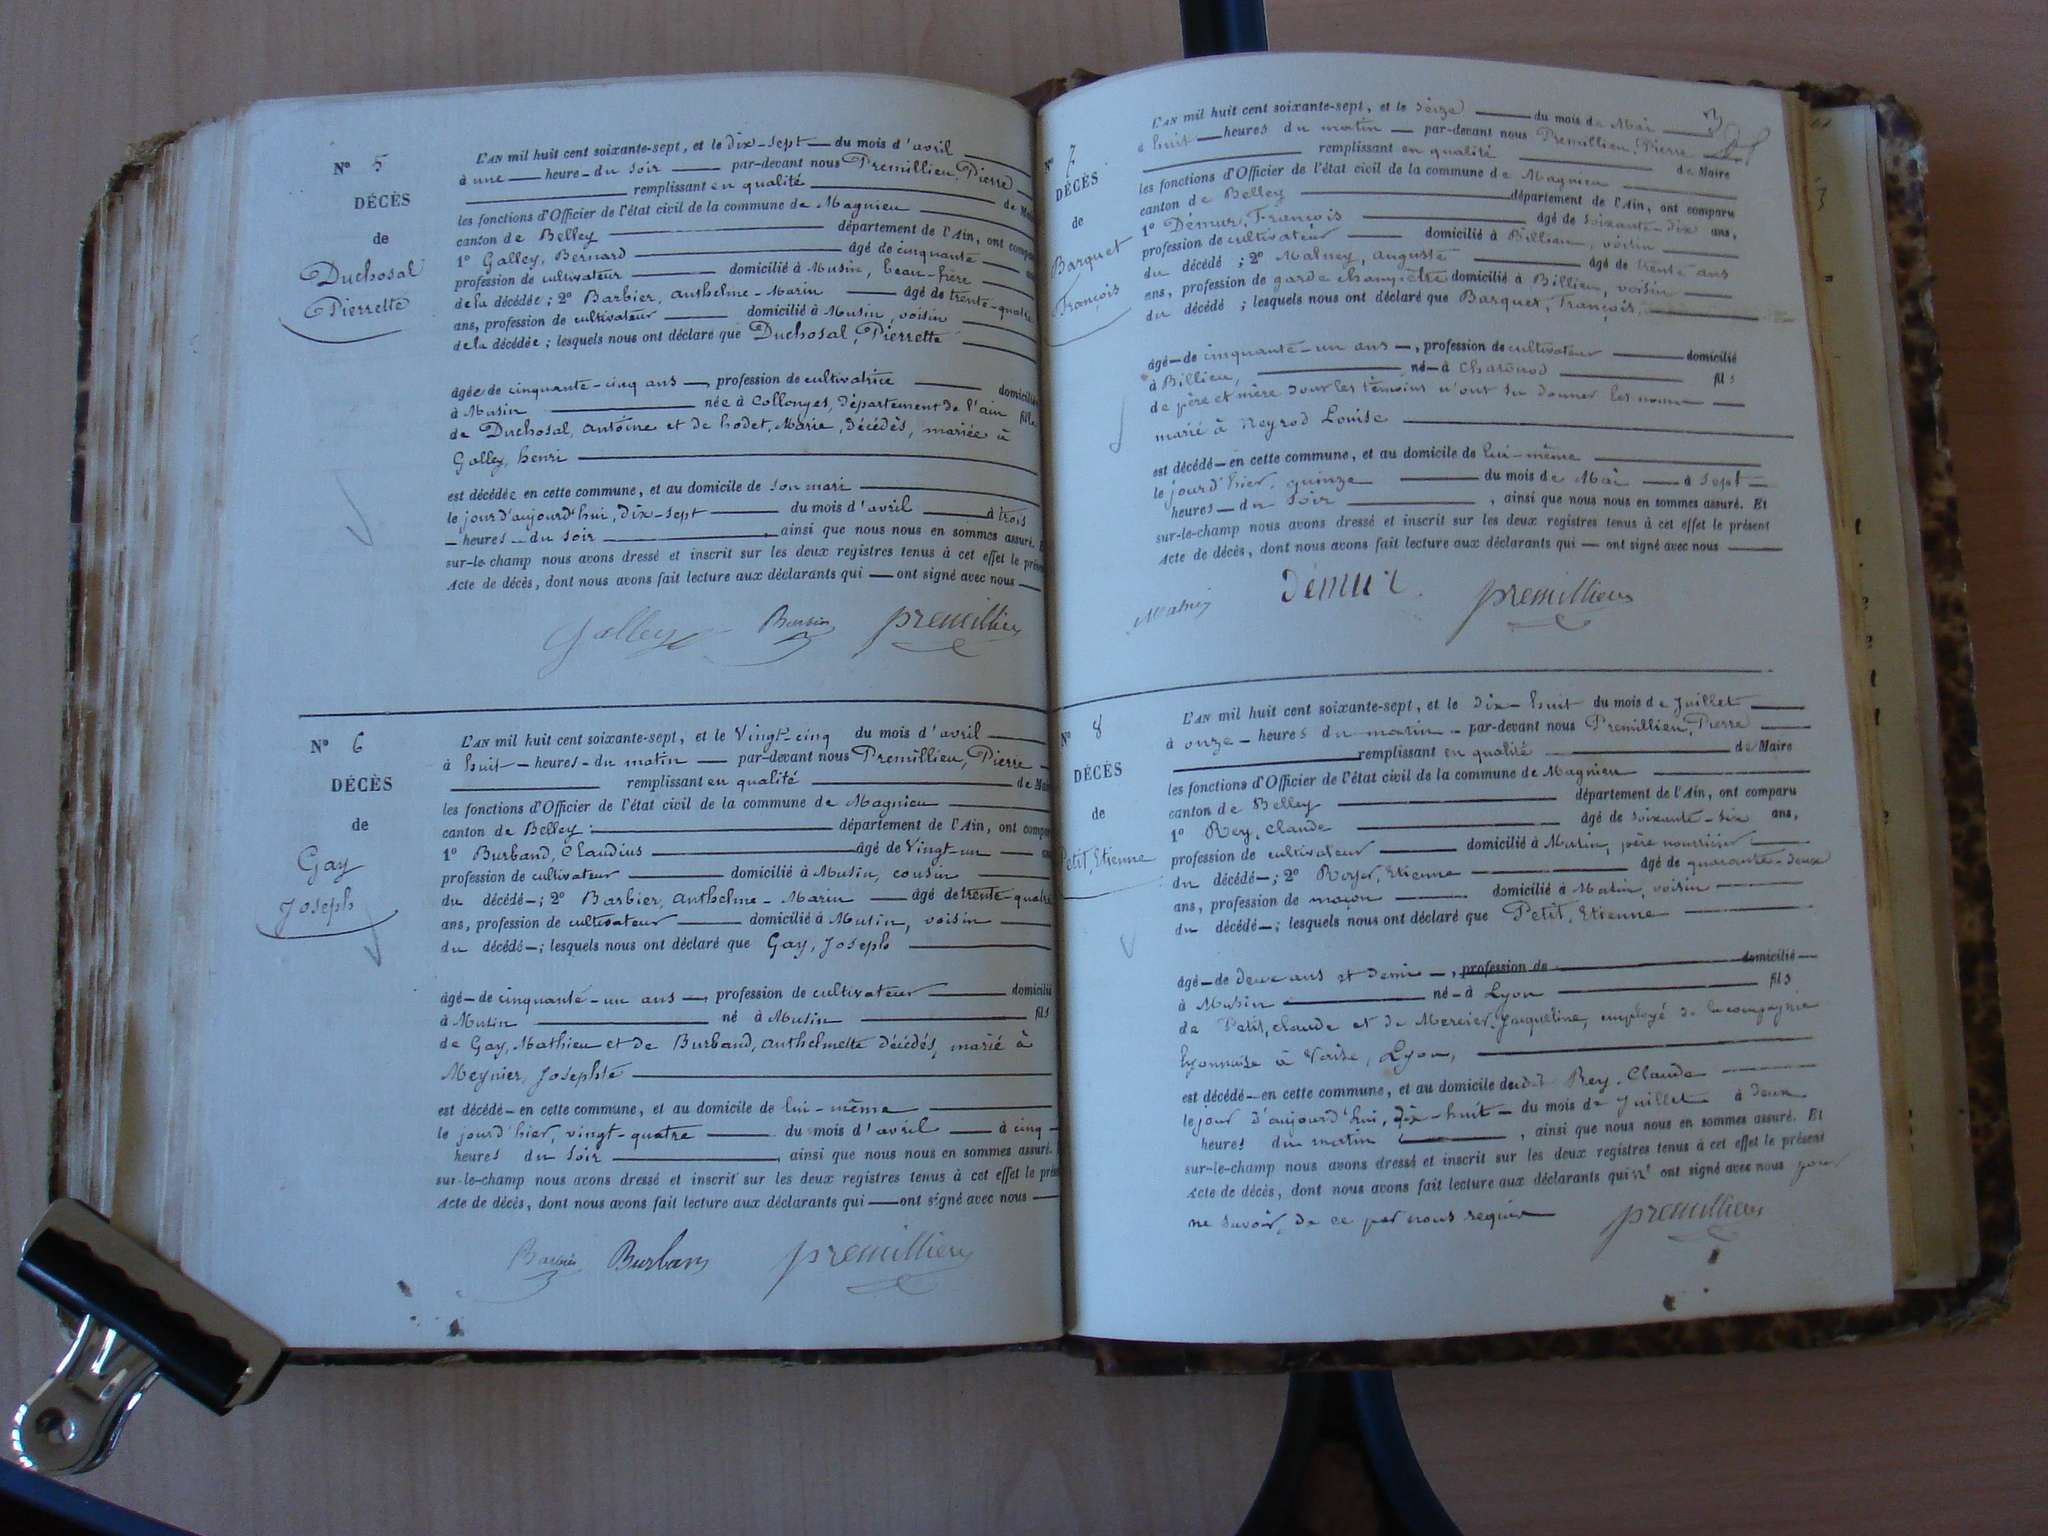 N° 5
DÉCÈS
de
Duchosal
Pierrette
L'AN mil huit cent soixante-sept, et le Dix-sept du mois d'avril
à une heure du soir par-devant nous Premillieu, Pierre
remplissant en qualité de Mai
les fonctions d'Officier de l'état civil de la commune de Magnieu
canton de Belley département de l'Ain, ont compa
1° Galley, Bernard âgé de cinquante
profession de cultivateur domicilié à Musin, beau-frère
de la décédée; 2° Barbier, anthelme-Marin âgé de trente-quatre
ans, profession de cultivateur domicilié à Musin, voisin
de la décédée; lesquels nous ont déclaré que Duchosal, Pierrette
âgée de cinquante-cinq ans, profession de cultivatrice domicilié
à Musin née à Collonges, Département de l'ain fille
de Duchosal, antoine et de hodet, Marie, Décédés, mariée à
Galley, henri
est décédée en cette commune, et au domicile de son mari
le jour d'aujourd'hui, dix-sept du mois d'avril à trois
heures du soir, ainsi que nous nous en sommes assuré. E
sur-le-champ nous avons dressé et inscrit sur les deux registres tenus à cet effet le prése
Acte de décès, dont nous avons fait lecture aux déclarants qui ont signé avec nous
Galley Premillieu
N° 6
DÉCÈS
de
Gay
Joseph
L'AN mil huit cent soixante-sept, et le Vingt-cinq du mois d'avril
à huit heures du matin par-devant nous Premillieu, Pierre
remplissant en qualité de Mai
les fonctions d'Officier de l'état civil de la commune de Magnieu
canton de Belley département de l'Ain, ont compa
1° Burband, Claudius âgé de Vingt-un
profession de cultivateur domicilié à Musin, cousin
du décédé; 2° Barbier, anthelme-Marin âgé de trente-quatre
ans, profession de cultivateur domicilié à Musin, voisin
du décédé; lesquels nous ont déclaré que Gay, Joseph
âgé de cinquante-un ans, profession de cultivateur domicilié
à Musin né à Musin fils
de Gay, Mathieu et de Burband, anthelmette Décédés, marié à
Meynier, Josephte
est décédé en cette commune, et au domicile de lui-même
le jour d'hier, vingt-quatre du mois d'avril à cinq
heures du soir, ainsi que nous nous en sommes assuré.
sur-le-champ nous avons dressé et inscrit sur les deux registres tenus à cet effet le prése
Acte de décès, dont nous avons fait lecture aux déclarants qui ont signé avec nous
Barbier Burband Premillieu
3
N° 7
DÉCÈS
de
Barquet
François
L'AN mil huit cent soixante-sept, et le seize du mois de Mai
à huit heures du matin par-devant nous Premillieu, Pierre
remplissant en qualité de Maire
les fonctions d'Officier de l'état civil de la commune de Magnieu
canton de Belley département de l'Ain, ont comparu
1° Démur, François âgé de soixante-dix ans,
profession de cultivateur domicilié à Billieu, voisin
du décédé; 2° Malney, auguste âgé de trente ans
ans, profession de garde champêtre domicilié à Billieu, voisin
du décédé; lesquels nous ont déclaré que Barquet, François,
âgé de cinquante-un ans, profession de cultivateur domicilié
à Billieu, né à Chatonod fils
de père et mère dont les témoins n'ont su donner les noms
marié à Neyrod Louise
est décédé en cette commune, et au domicile de lui-même
le jour d'hier, quinze du mois de Mai à sept
heures du soir, ainsi que nous nous en sommes assuré. Et
sur-le-champ nous avons dressé et inscrit sur les deux registres tenus à cet effet le présent
Acte de décès, dont nous avons fait lecture aux déclarants qui ont signé avec nous
Démur Premillieu
N° 8
DÉCÈS
de
Petit, Etienne
L'AN mil huit cent soixante-sept, et le Dix-huit du mois de Juillet
à onze heures du matin par-devant nous Premillieu, Pierre
remplissant en qualité de Maire
les fonctions d'Officier de l'état civil de la commune de Magnieu
canton de Belley département de l'Ain, ont comparu
1° Rey, Claude âgé de soixante-six ans,
profession de cultivateur domicilié à Musin, père nourricier
du décédé; 2° Royer, Etienne âgé de quarante-deux
ans, profession de maçon domicilié à Musin, voisin
du décédé; lesquels nous ont déclaré que Petit, Etienne
âgé de deux ans et demi, profession de domicilié
à Musin né à Lyon fils
de Petit, Claude et de Mercier, Jacqueline, employé de la compagnie
lyonnaise à Vaise, Lyon,
est décédé en cette commune, et au domicile dudit Rey, Claude
le jour d'aujourd'hui, dix-huit du mois de Juillet à deux
heures du matin, ainsi que nous nous en sommes assuré. Et
sur-le-champ nous avons dressé et inscrit sur les deux registres tenus à cet effet le présent
Acte de décès, dont nous avons fait lecture aux déclarants qui n'ont signé avec nous pour
ne savoir, de ce par nous requis
Premillieu